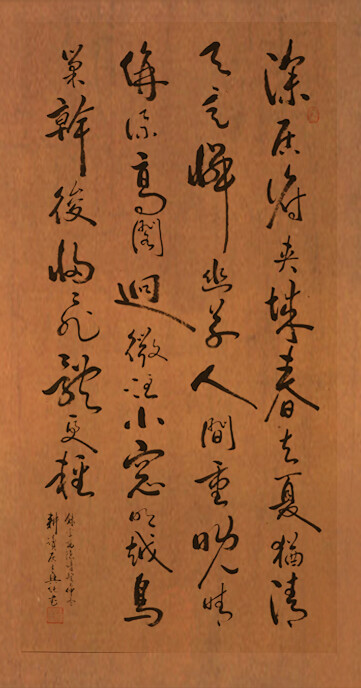 深居俯夾城春去夏猶清
天意憐幽草人間重晚晴
併添高閣迥微注小窓明越鳥
巢幹後歸飛體更輕